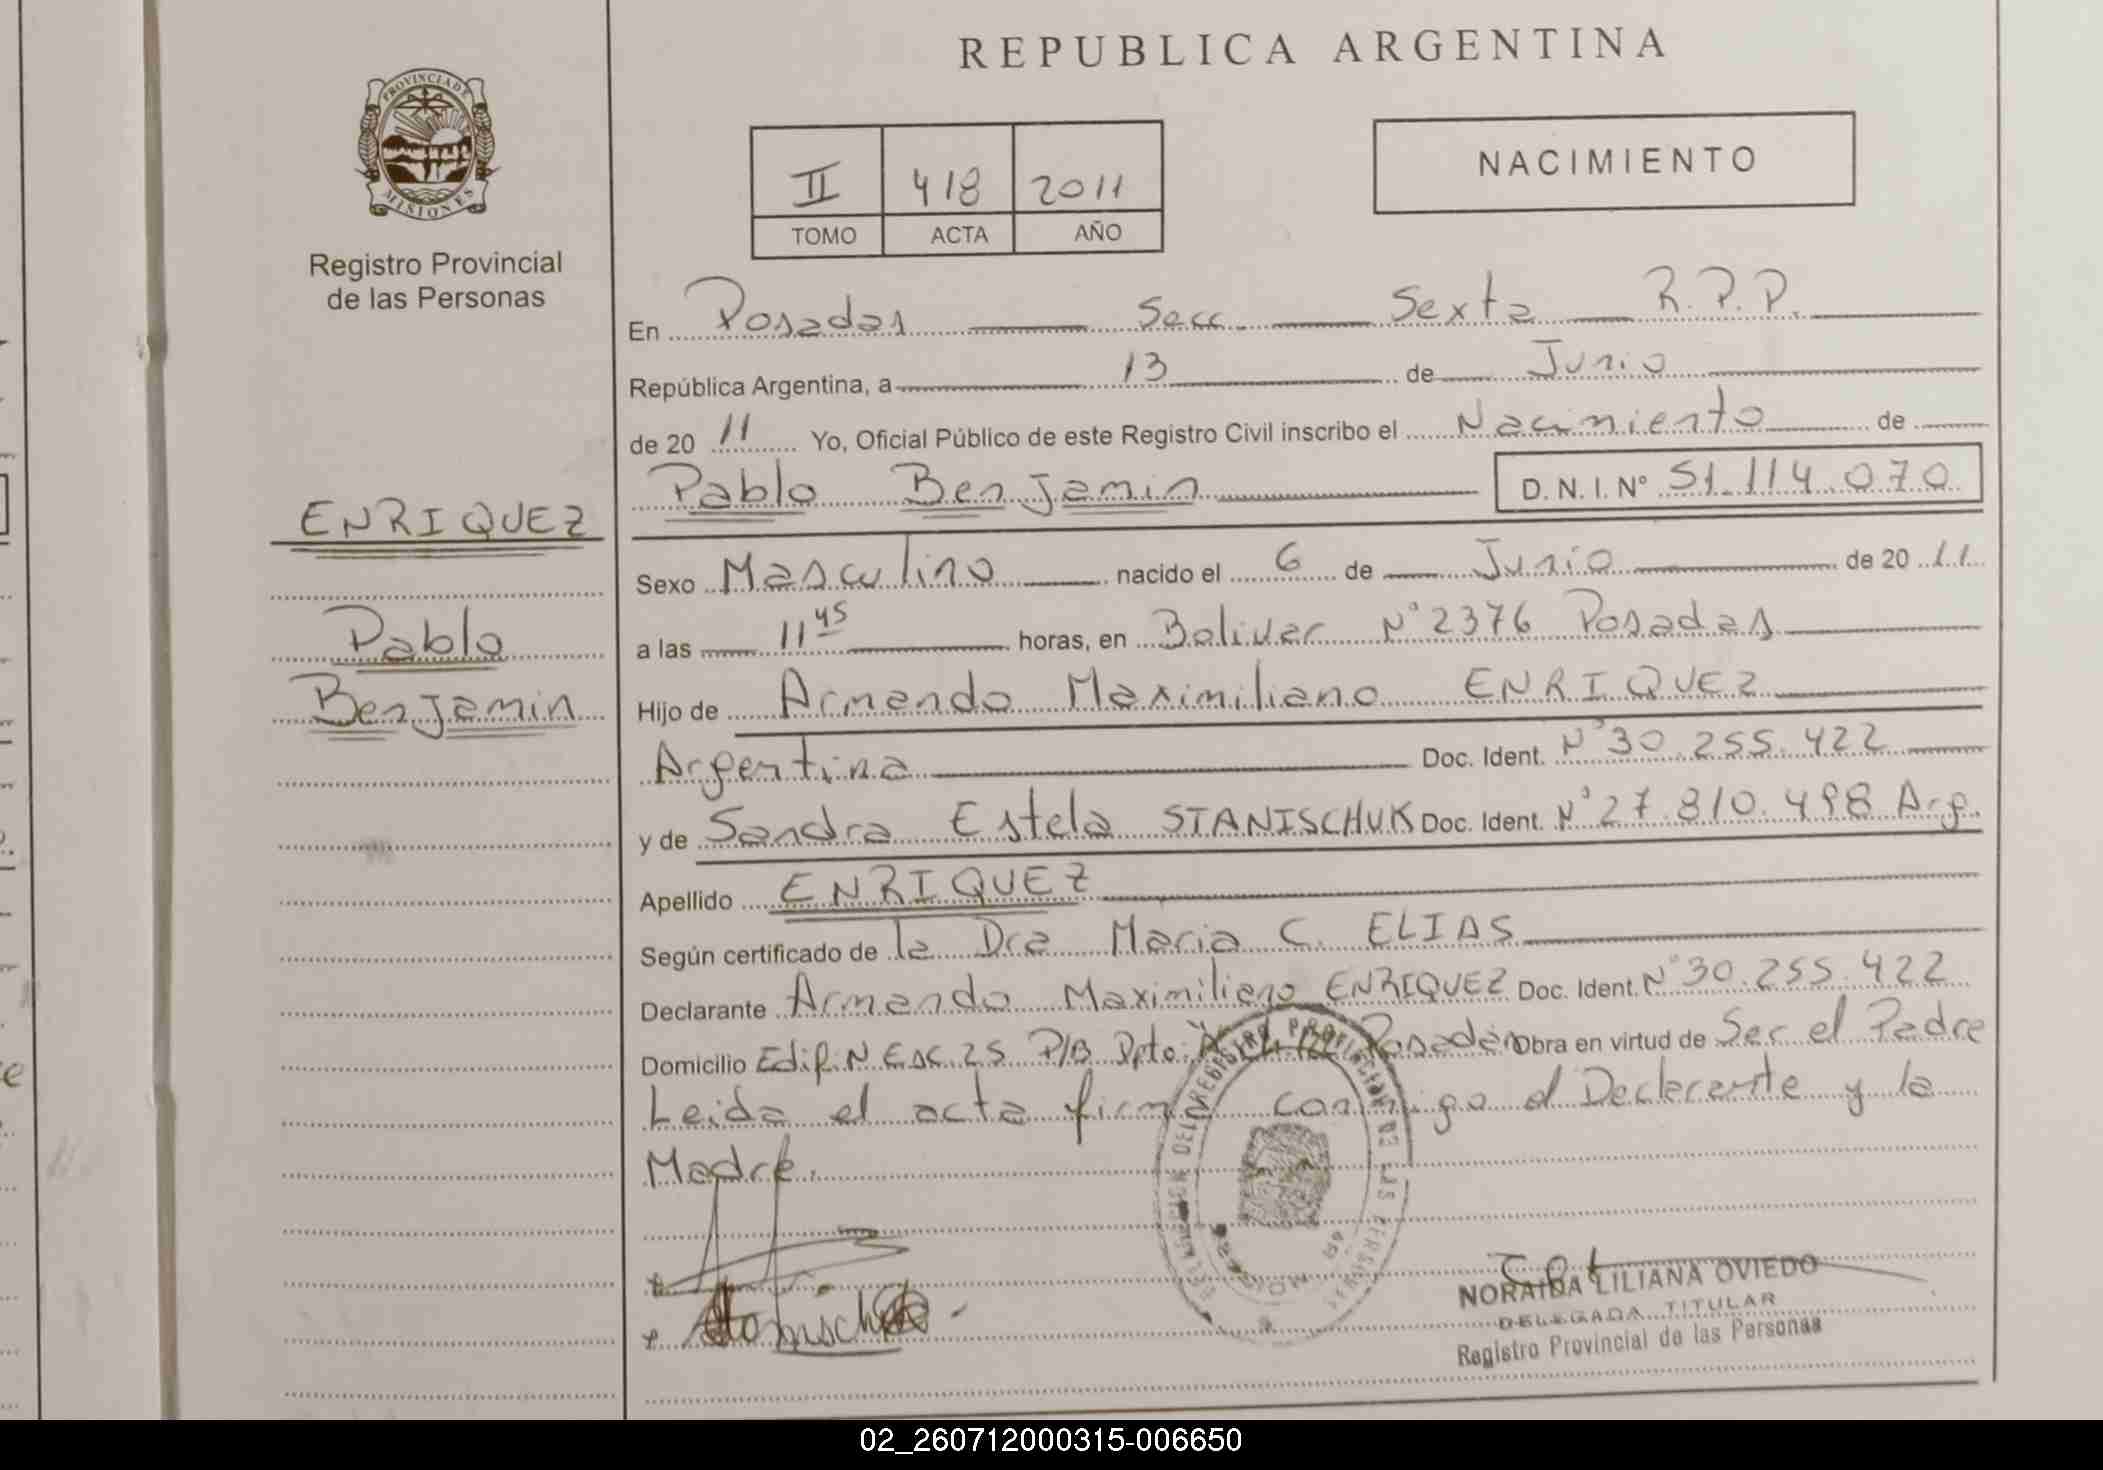 PROVINCIA DE
MISIONES
Registro Provincial
de las Personas
ENRIQUEZ
Pablo
Benjamin
REPUBLICA ARGENTINA
II 418 2011
TOMO ACTA AÑO
NACIMIENTO
En Posadas Secc. Sexta R.P.P.
República Argentina, a 13 de Junio
de 20 11 Yo, Oficial Público de este Registro Civil inscribo el Nacimiento de
Pablo Benjamin D.N.I. Nº 51.114.070
Sexo Masculino nacido el 6 de Junio de 20 11
a las 11 45 horas, en Bolivar Nº 2376 Posadas
Hijo de Armando Maximiliano ENRIQUEZ
Argentina Doc. Ident. Nº 30.255.422
y de Sandra Estela STANISCHUK Doc. Ident. Nº 27.810.498 Arg.
Apellido ENRIQUEZ
Según certificado de la Dra Maria C. ELIAS
Declarante Armando Maximiliano ENRIQUEZ Doc. Ident. Nº 30.255.422
Domicilio Edif. N Esc. 25 P/B Dpto. Posadas Obra en virtud de Ser el Padre
Leida el acta firma conmigo el Declarante y la
Madre.
REGISTRO PROVINCIAL DE LAS PERSONAS
NORAIDA LILIANA OVIEDO
DELEGADA TITULAR
Registro Provincial de las Personas
02_260712000315-006650